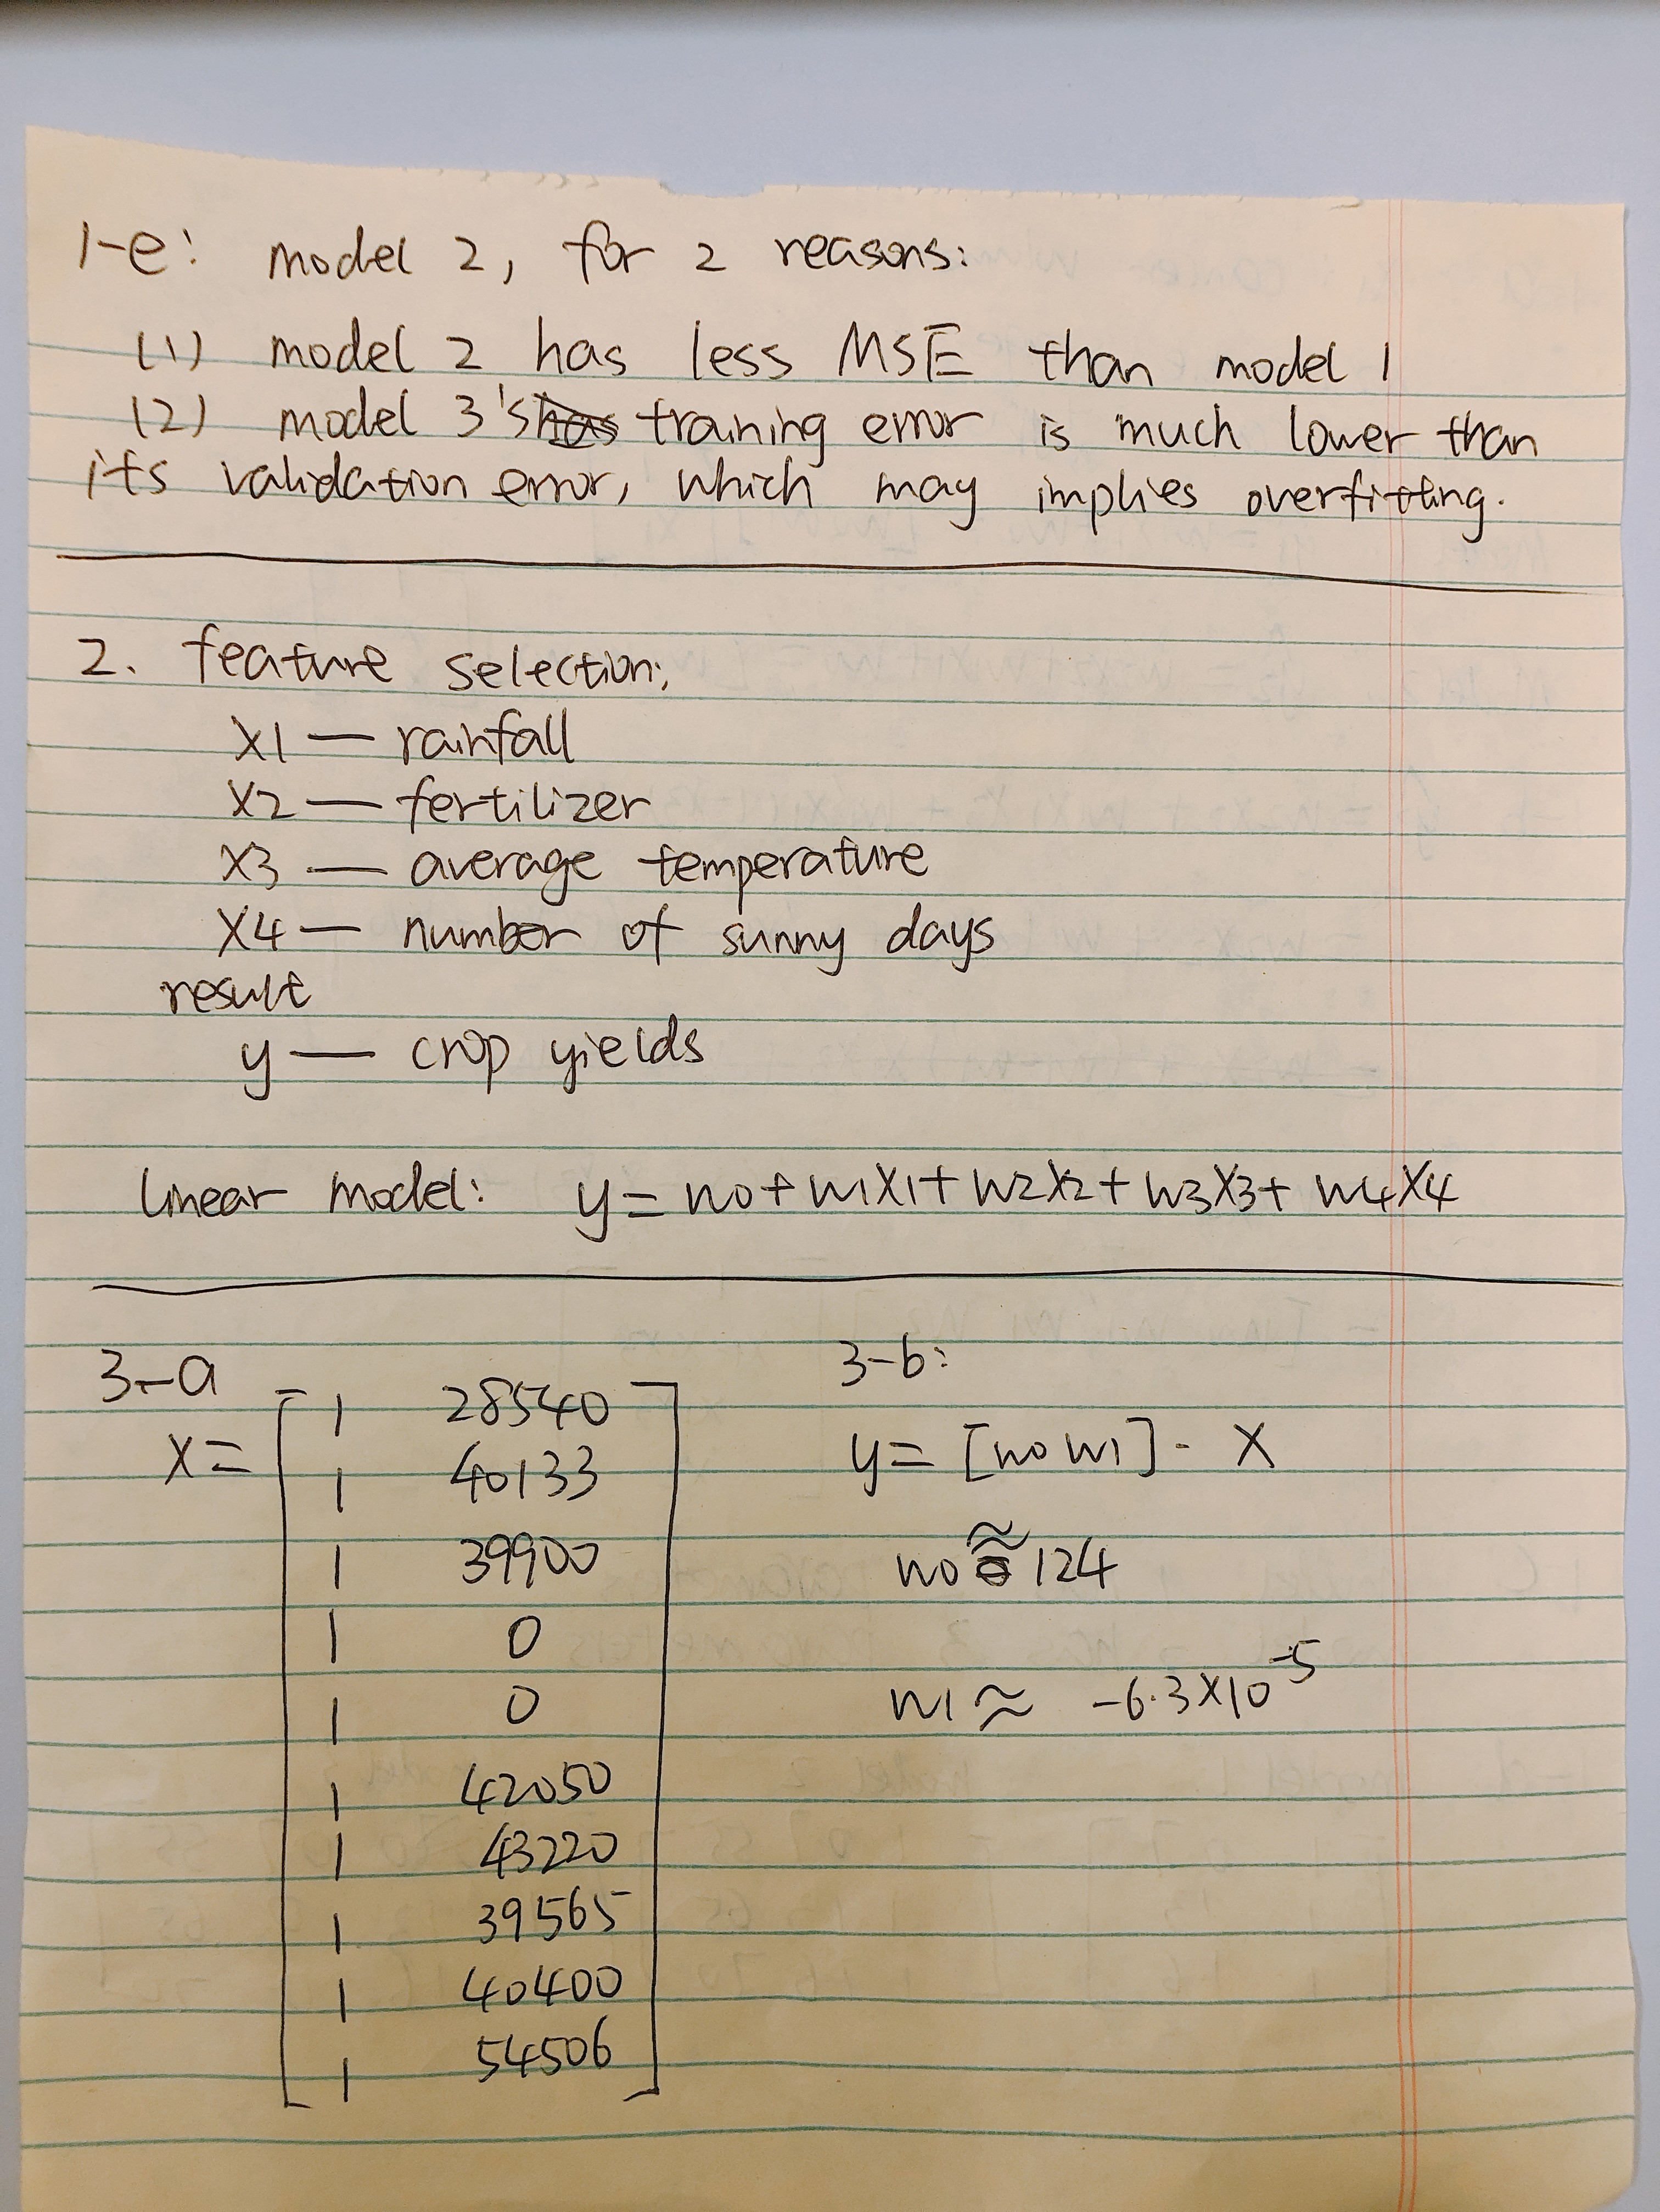 1-e: model 2, for 2 reasons:
(1) model 2 has less MSE than model 1
(2) model 3's training error is much lower than
its validation error, which may implies overfitting.
2. feature selection:
x1 — rainfall
x2 — fertilizer
x3 — average temperature
x4 — number of sunny days
result
y — crop yields
linear model: y = w0 + w1x1 + w2x2 + w3x3 + w4x4
3-a
X =
1 28540
1 40133
1 39900
1 0
1 0
1 42050
1 43220
1 39565
1 40400
1 54506
3-b:
y = [w0 w1] · X
w0 ≈ 124
w1 ≈ -6.3×10^-5